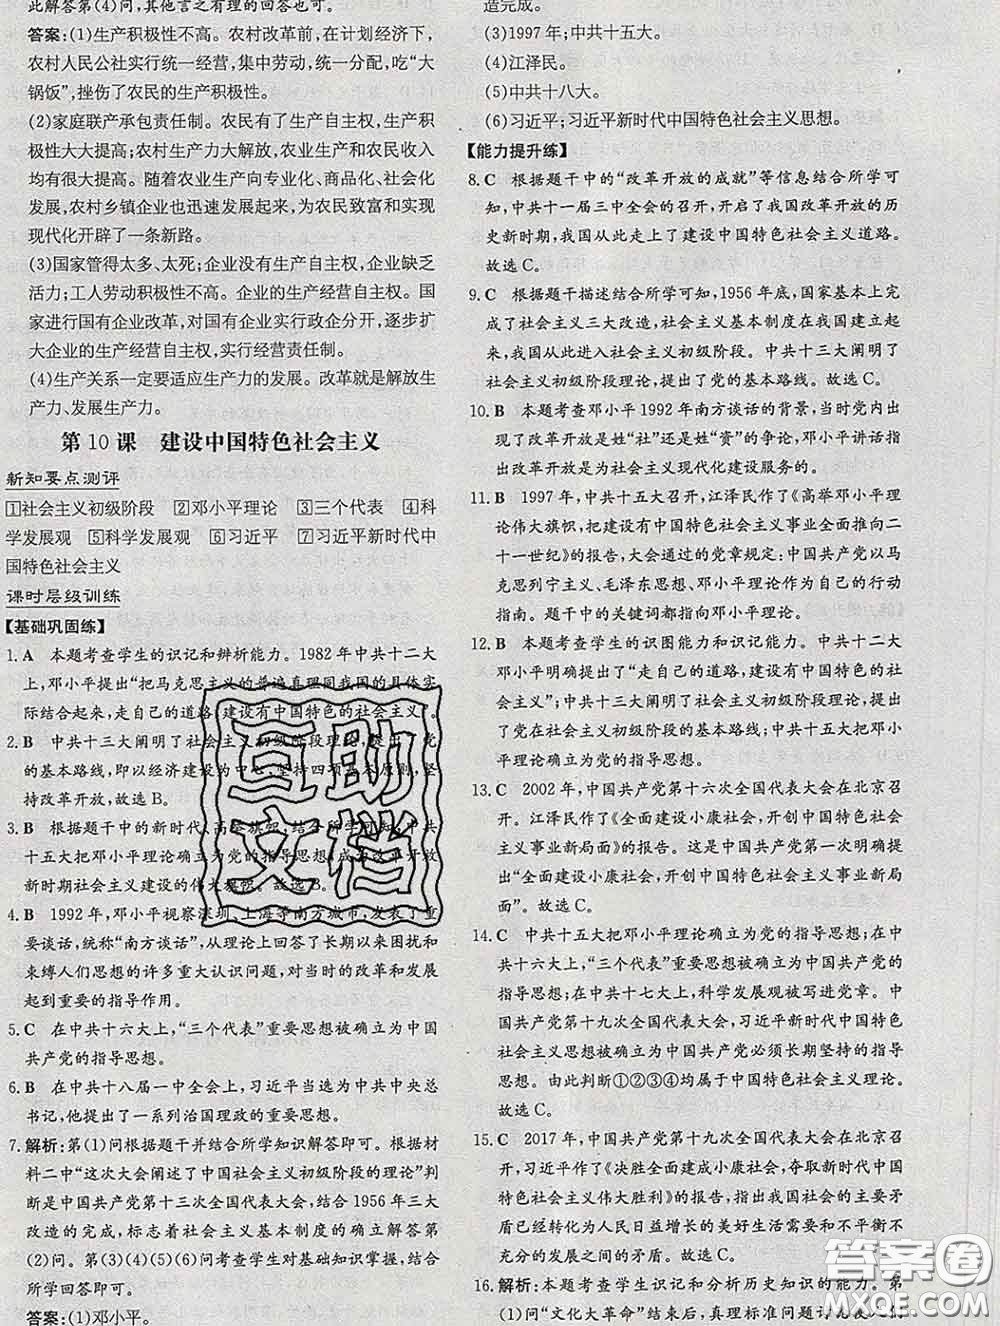 此解答第(4)问,其他言之有理的回答也可。
答案:(1)生产积极性不高。农村改革前,在计划经济下,
农村人民公社实行统一经营,集中劳动,统一分配,吃“大
锅饭”,挫伤了农民的生产积极性。
(2)家庭联产承包责任制。农民有了生产自主权,生产积
极性大大提高;农村生产力大解放,农业生产和农民收入
均有很大提高。随着农业生产向专业化、商品化、社会化
发展,农村乡镇企业也迅速发展起来,为农民致富和实现
现代化开辟了一条新路。
(3)国家管得太多、太死;企业没有生产自主权,企业缺乏
活力;工人劳动积极性不高。企业的生产经营自主权。国
家进行国有企业改革,对国有企业实行政企分开,逐步扩
大企业的生产经营自主权,实行经营责任制。
(4)生产关系一定要适应生产力的发展。改革就是解放生
产力、发展生产力。
第10课 建设中国特色社会主义
新知要点测评
①社会主义初级阶段 ②邓小平理论 ③三个代表 ④科
学发展观 ⑤科学发展观 ⑥习近平 ⑦习近平新时代中
国特色社会主义
课时层级训练
【基础巩固练】
1. A 本题考查学生的识记和辨析能力。1982年中共十二大
上,邓小平提出“把马克思主义的普遍真理同我国的具体实
际结合起来,走自己的道路,建设有中国特色的社会主义”。
2. B 中共十三大阐明了社会主义初级阶段理论,提出 党
的基本路线,即以经济建设为中心,坚持四项基本原则,坚
持改革开放,故选B。
3. B 根据题干中的新时代、高举旗帜,结合所学可知,中共
十五大把邓小平理论确立为党的指导思想,成为改革开放
新时期社会主义建设的伟大旗帜。故选B。
4. B 1992年,邓小平视察深圳、上海等南方城市,发表了重
要谈话,统称“南方谈话”,从理论上回答了长期以来困扰和
束缚人们思想的许多重大认识问题,对当时的改革和发展
起到重要的指导作用。
5. C 在中共十六大上,“三个代表”重要思想被确立为中国
共产党的指导思想。
6. B 在中共十八届一中全会上,习近平当选为中共中央总
书记,他提出了一系列治国理政的重要思想。
7. 解析:第(1)问根据题干并结合所学知识解答即可。根据材
料二中“这次大会阐述了中国社会主义初级阶段的理论”判
断是中国共产党第十三次全国代表大会,结合1956年三大
改造的完成,标志着社会主义基本制度的确立解答第
(2)问。第(3)(4)(5)(6)问考查学生对基础知识掌握,结合
所学回答即可。
答案:(1)邓小平。
造完成。
(3)1997年;中共十五大。
(4)江泽民。
(5)中共十八大。
(6)习近平;习近平新时代中国特色社会主义思想。
【能力提升练】
8. C 根据题干中的“改革开放的成就”等信息结合所学可
知,中共十一届三中全会的召开,开启了我国改革开放的历
史新时期,我国从此走上了建设中国特色社会主义道路。
故选C。
9. C 根据题干描述结合所学可知,1956年底,国家基本上完
成了社会主义三大改造,社会主义基本制度在我国建立起
来,我国从此进入社会主义初级阶段。中共十三大阐明了
社会主义初级阶段理论,提出了党的基本路线。故选C。
10. B 本题考查邓小平1992年南方谈话的背景,当时党内出
现了改革开放是姓“社”还是姓“资”的争论,邓小平讲话指
出改革开放是为社会主义现代化建设服务的。
11. B 1997年,中共十五大召开,江泽民作了《高举邓小平理
论伟大旗帜,把建设有中国特色社会主义事业全面推向二
十一世纪》的报告,大会通过的党章规定:中国共产党以马
克思列宁主义、毛泽东思想、邓小平理论作为自己的行动
指南。题干中的关键词都指向邓小平理论。
12. B 本题考查学生的识图能力和识记能力。中共十二大
邓小平明确提出了“走自己的道路,建设有中国特色的社
会主义”;中共十三大阐明了社会主义初级阶段理论,提出
了党在社会主义初级阶段的基本路线;中共十五大把邓小
平理论确立为党的指导思想。
13. C 2002年,中国共产党第十六次全国代表大会在北京召
开。江泽民作了《全面建设小康社会,开创中国特色社会
主义事业新局面》的报告。这是中国共产党第一次明确提
出“全面建设小康社会,开创中国特色社会主义事业新局
面”。故选C。
14. C 中共十五大把邓小平理论确立为党的指导思想;在中
共十六大上,“三个代表”重要思想被确立为中国共产党的
指导思想;在中共十七大上,科学发展观被写进党章。中
国共产党第十九次全国代表大会,习近平新时代中国特色
社会主义思想被确立为中国共产党必须长期坚持的指导
思想。由此判断①②③④均属于中国特色社会主义理论。
故选C。
15. C 2017年,中国共产党第十九次全国代表大会在北京召
开。习近平作了《决胜全面建成小康社会,夺取新时代中国
特色社会主义伟大胜利》的报告,指出我国社会的主要矛
盾已经转化为人民日益增长的美好生活需要和不平衡不
充分的发展之间的矛盾。故选C。
16. 解析:本题考查学生识记和分析历史知识的能力。第
(1)问“文化大革命”结束后,真理标准问题讨论充分
互助
文档
答案圈
MXQE.COM